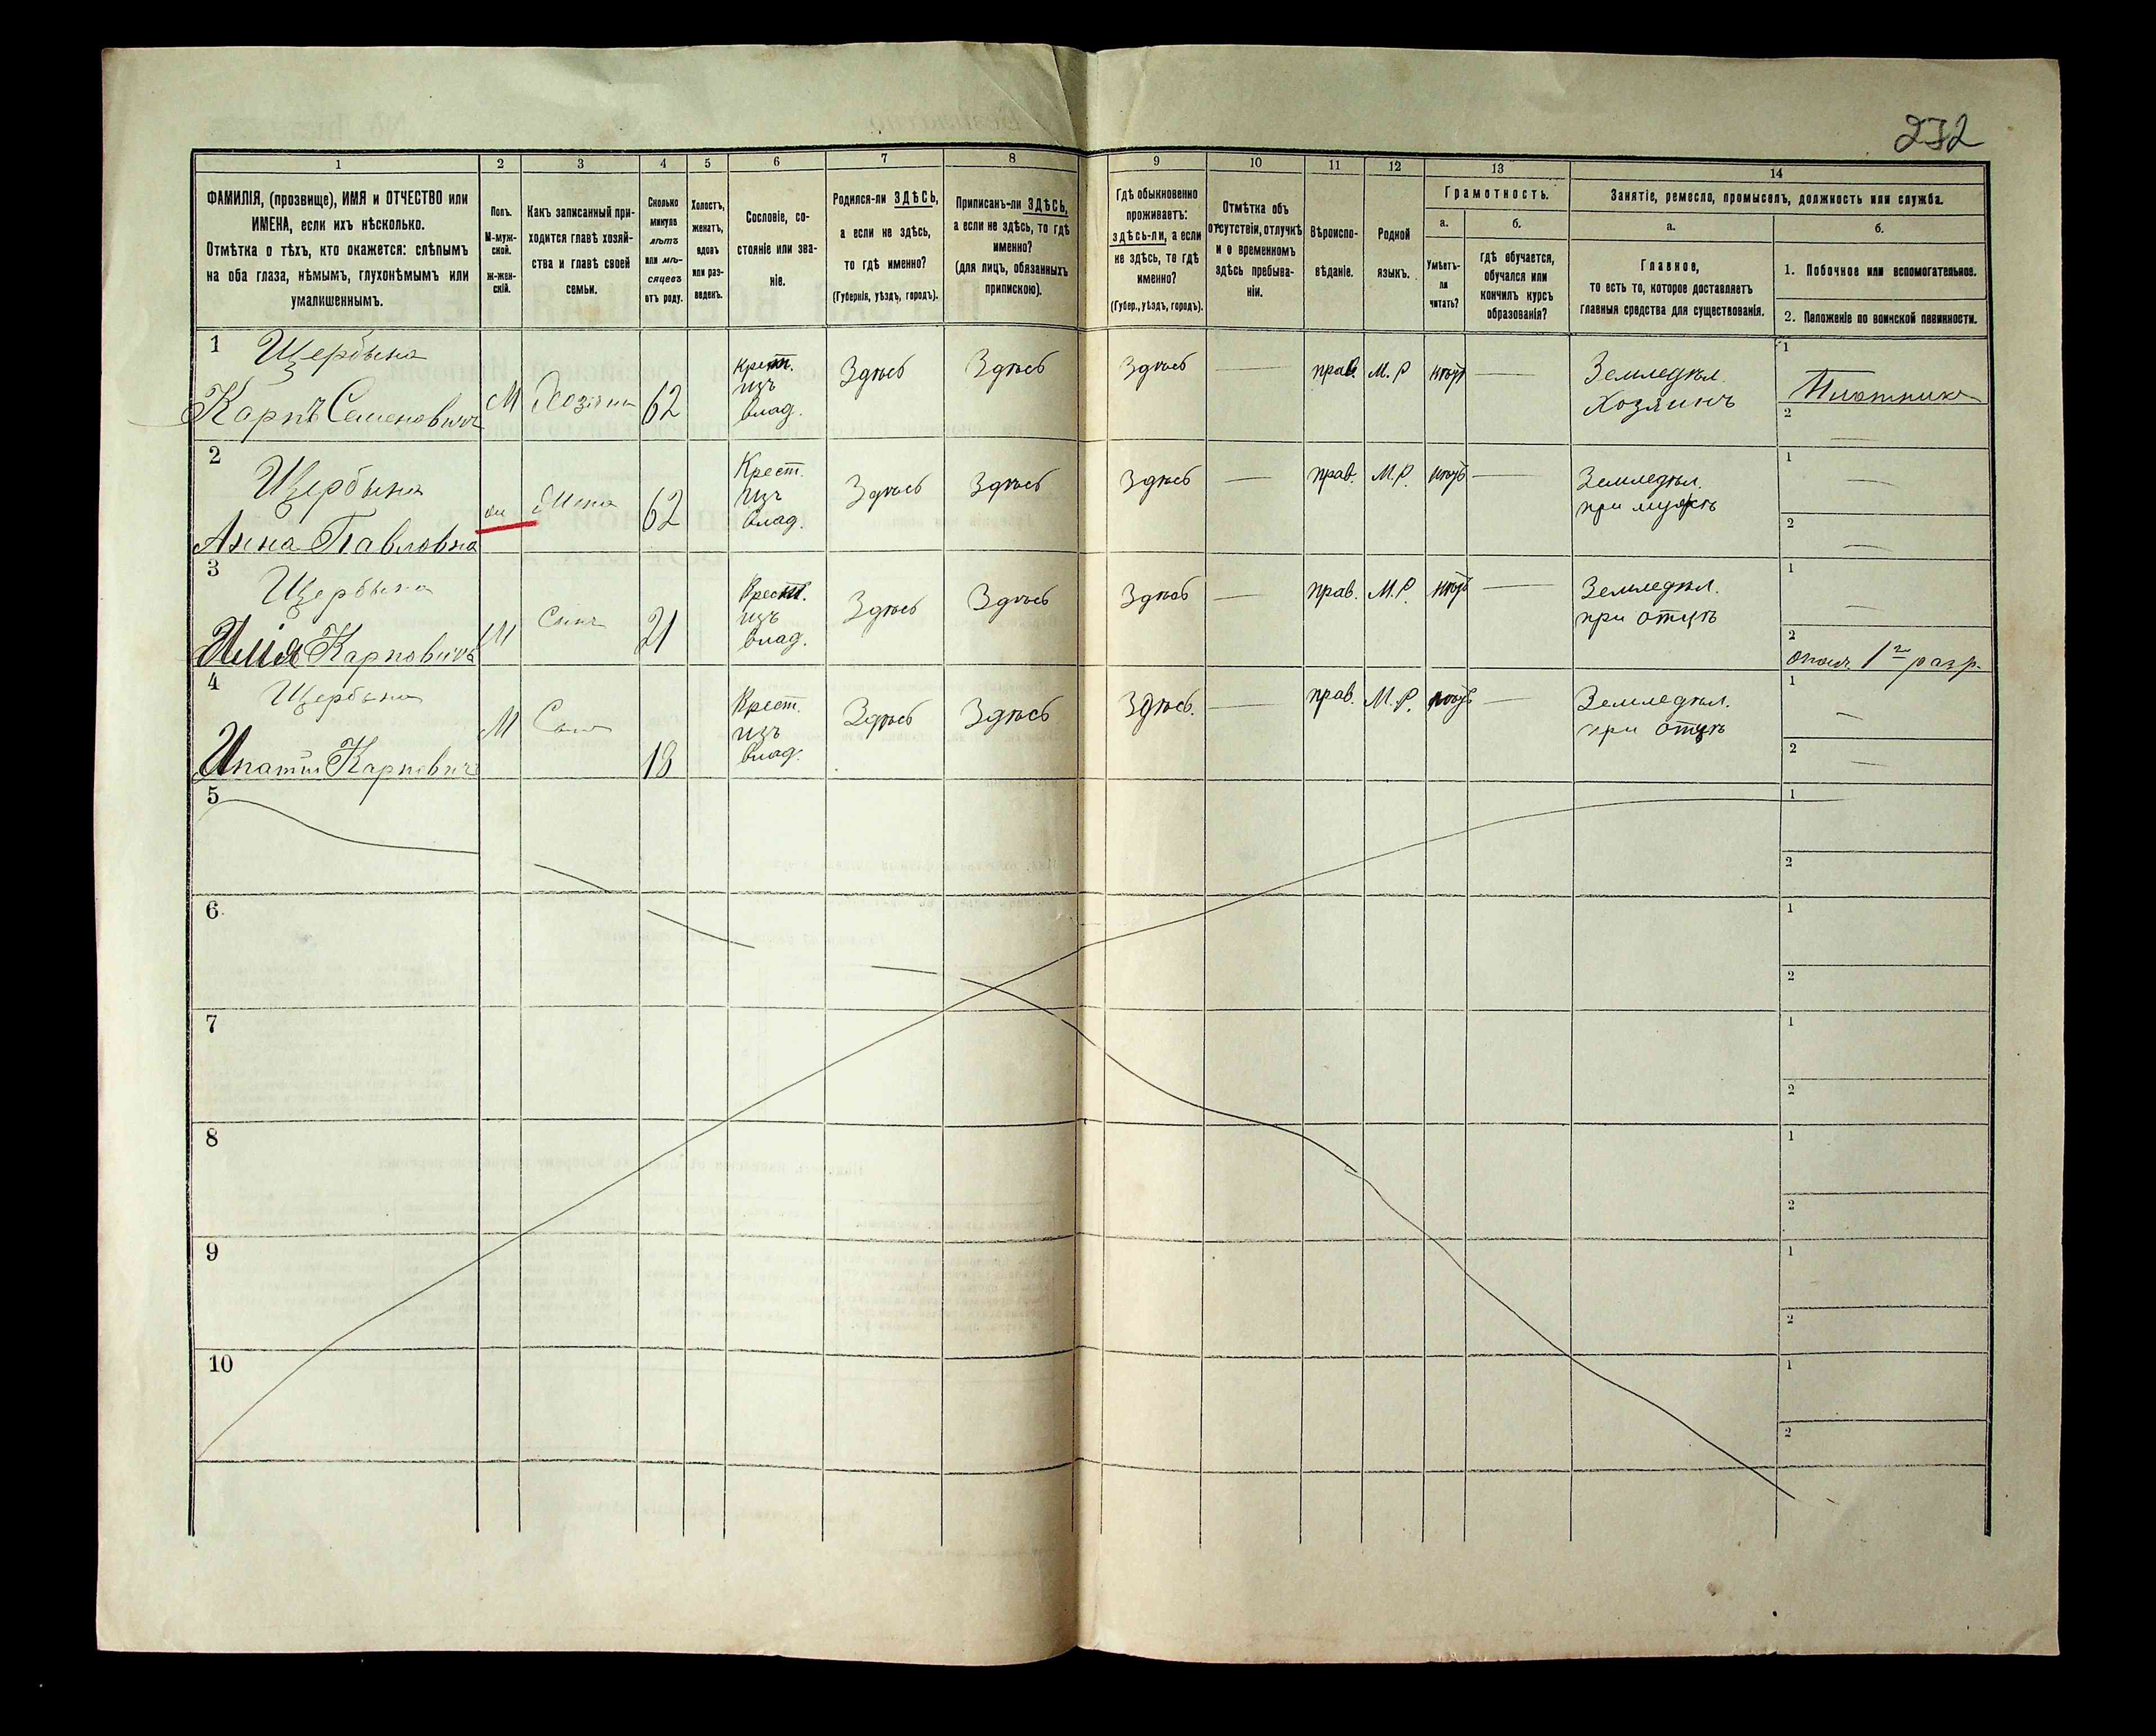 232
1
2
3
4
5
6
7
8
9
10
11
12
13
14
ФАМИЛІЯ, (прозвище), ИМЯ и ОТЧЕСТВО или
ИМЕНА, если ихъ нѣсколько.
Отмѣтка о тѣхъ, кто окажется: слѣпымъ
на оба глаза, нѣмымъ, глухонѣмымъ или
умалишеннымъ.
Полъ.
М-муж-
ской.
Ж-жен-
скій.
Какъ записанный при-
ходится главѣ хозяй-
ства и главѣ своей
семьи.
Сколько
минуло
лѣтъ
или мѣ-
сяцевъ
отъ роду.
Холостъ,
женатъ,
вдовъ
или раз-
веденъ.
Сословіе, со-
стояніе или зва-
ніе.
Родился-ли ЗДѢСЬ,
а если не здѣсь,
то гдѣ именно?
(Губернія, уѣздъ, городъ).
Приписанъ-ли ЗДѢСЬ,
а если не здѣсь, то гдѣ
именно?
(для лицъ, обязанныхъ
припискою).
Гдѣ обыкновенно
проживаетъ:
здѣсь-ли, а если
не здѣсь, то гдѣ
именно?
(Губер., уѣздъ, городъ).
Отмѣтка объ
отсутствіи, отлучкѣ
и о временномъ
здѣсь пребыва-
ніи.
Вѣроиспо-
вѣданіе.
Родной
языкъ.
Грамотность.
а.
Умѣетъ-
ли
читать?
б.
гдѣ обучается,
обучался или
кончилъ курсъ
образованія?
Занятіе, ремесло, промыселъ, должность или служба.
а.
Главное,
то есть то, которое доставляетъ
главныя средства для существованія.
б.
1. Побочное или вспомогательное.
2. Положеніе по воинской повинности.
1
Щербына
Карпъ Семеновичъ
М
Хозяинъ
62
Крест.
изъ
влад.
Здѣсь
Здѣсь
Здѣсь
прав.
М.Р
нѣтъ
Земледѣл.
Хозяинъ
1
Плотникъ
2
2
Щербына
Анна Павловна
Жена
62
Крест.
изъ
влад.
Здѣсь
Здѣсь
Здѣсь
прав.
М.Р.
нѣтъ
Земледѣл.
при мужѣ
1
2
3
Щербына
Илія Карповичъ
М
Сынъ
21
Крест.
изъ
влад.
Здѣсь
Здѣсь
Здѣсь
прав.
М.Р.
нѣтъ
Земледѣл.
при отцѣ
1
2
ополч. 1го разр.
4
Щербына
Ипатій Карповичъ
М
Сынъ
18
Крест.
изъ
влад.
Здѣсь
Здѣсь
Здѣсь.
прав.
М.Р.
нѣтъ
Земледѣл.
при отцѣ
1
2
5
1
2
6
1
2
7
1
2
8
1
2
9
1
2
10
1
2